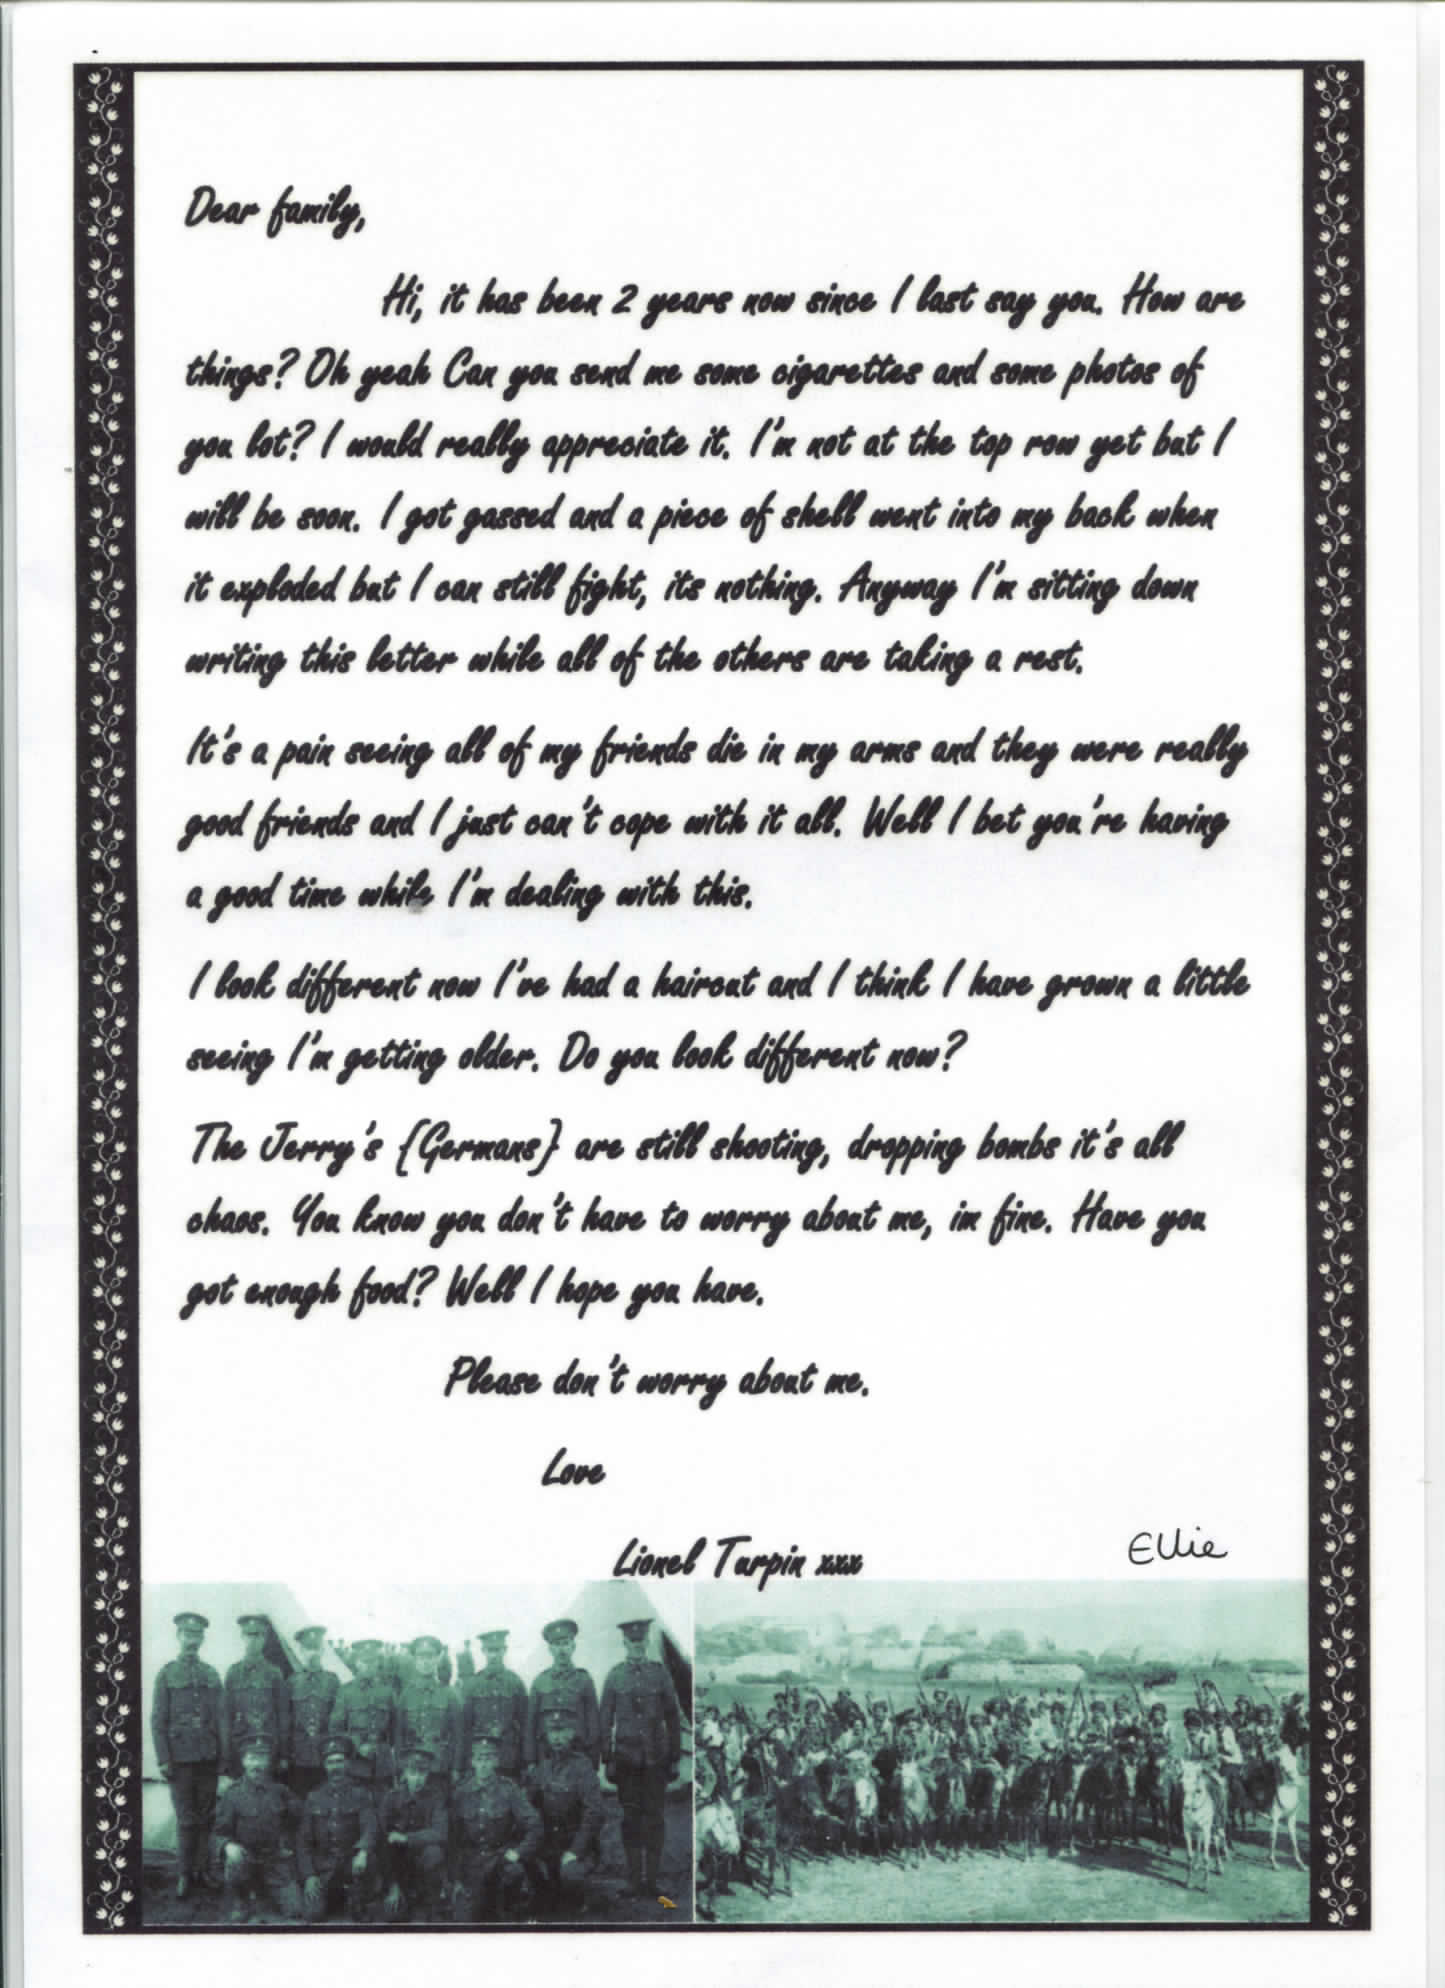 Dear family,
Hi, it has been 2 years now since I last say you. How are
things? Oh yeah Can you send me some cigarettes and some photos of
you lot? I would really appreciate it. I'm not at the top row yet but I
will be soon. I got gassed and a piece of shell went into my back when
it exploded but I can still fight, its nothing. Anyway I'm sitting down
writing this letter while all of the others are taking a rest.
It's a pain seeing all of my friends die in my arms and they were really
good friends and I just can't cope with it all. Well I bet you're having
a good time while I'm dealing with this.
I look different now I've had a haircut and I think I have grown a little
seeing I'm getting older. Do you look different now?
The Jerry's {Germans} are still shooting, dropping bombs it's all
chaos. You know you don't have to worry about me, im fine. Have you
got enough food? Well I hope you have.
Please don't worry about me.
Love
Lionel Turpin xxx
Ellie